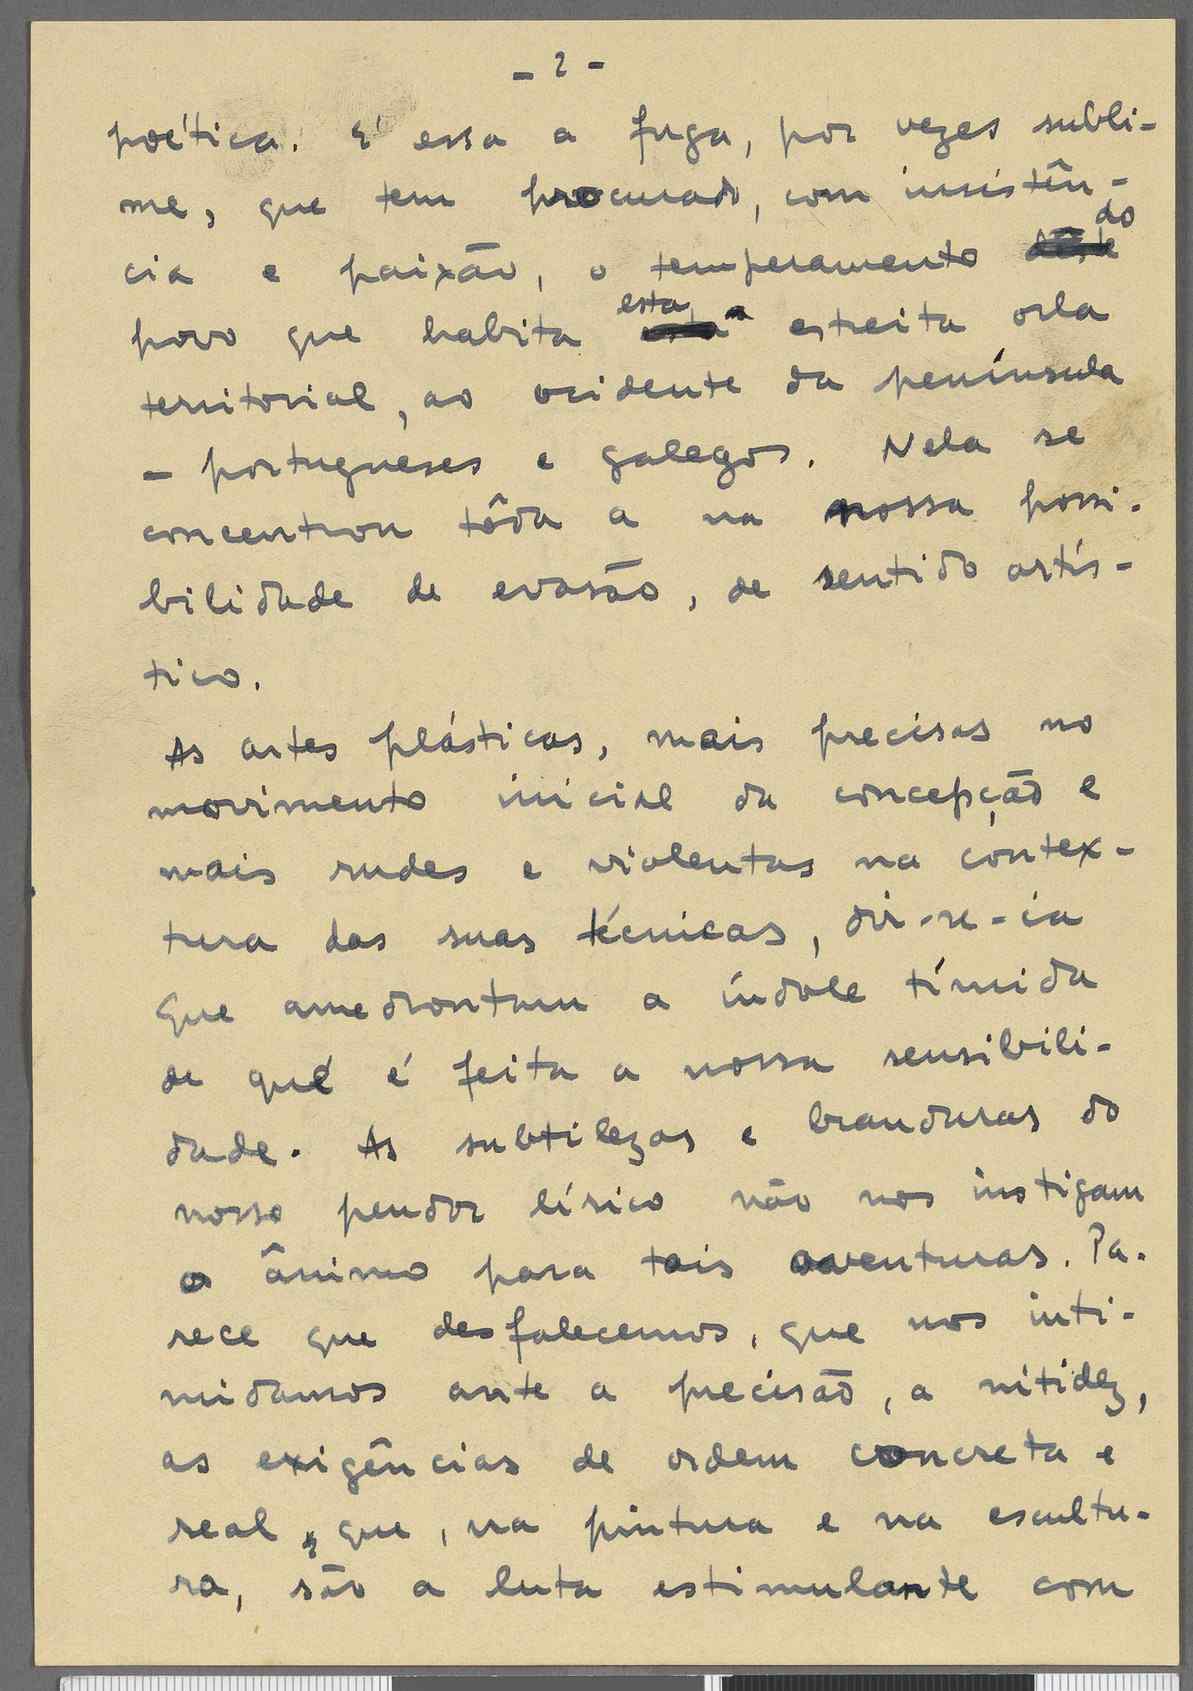 - 2 -
poética. É essa a fuga, por vezes subli-
me, que tem procurado, com insistên-
cia e paixão, o temperamento do
povo que habita esta estreita orla
territorial, ao ocidente da península
- portugueses e galegos. Nela se
concentrou tôda a na nossa possi-
bilidade de evasão, de sentido artís-
tico.
As artes plásticas, mais precisas no
movimento inicial da concepção e
mais rudes e violentas na contex-
tura das suas técnicas, dir-se-ia
que amedrontam a índole tímida
de que é feita a nossa sensibili-
dade. As subtilezas e branduras do
nosso pendor lírico não nos instigam
o ânimo para tais aventuras. Pa-
rece que desfalecemos, que nos inti-
midamos ante a precisão, a nitidez,
as exigências de ordem concreta e
real, que, na pintura e na escultu-
ra, são a luta estimulante com